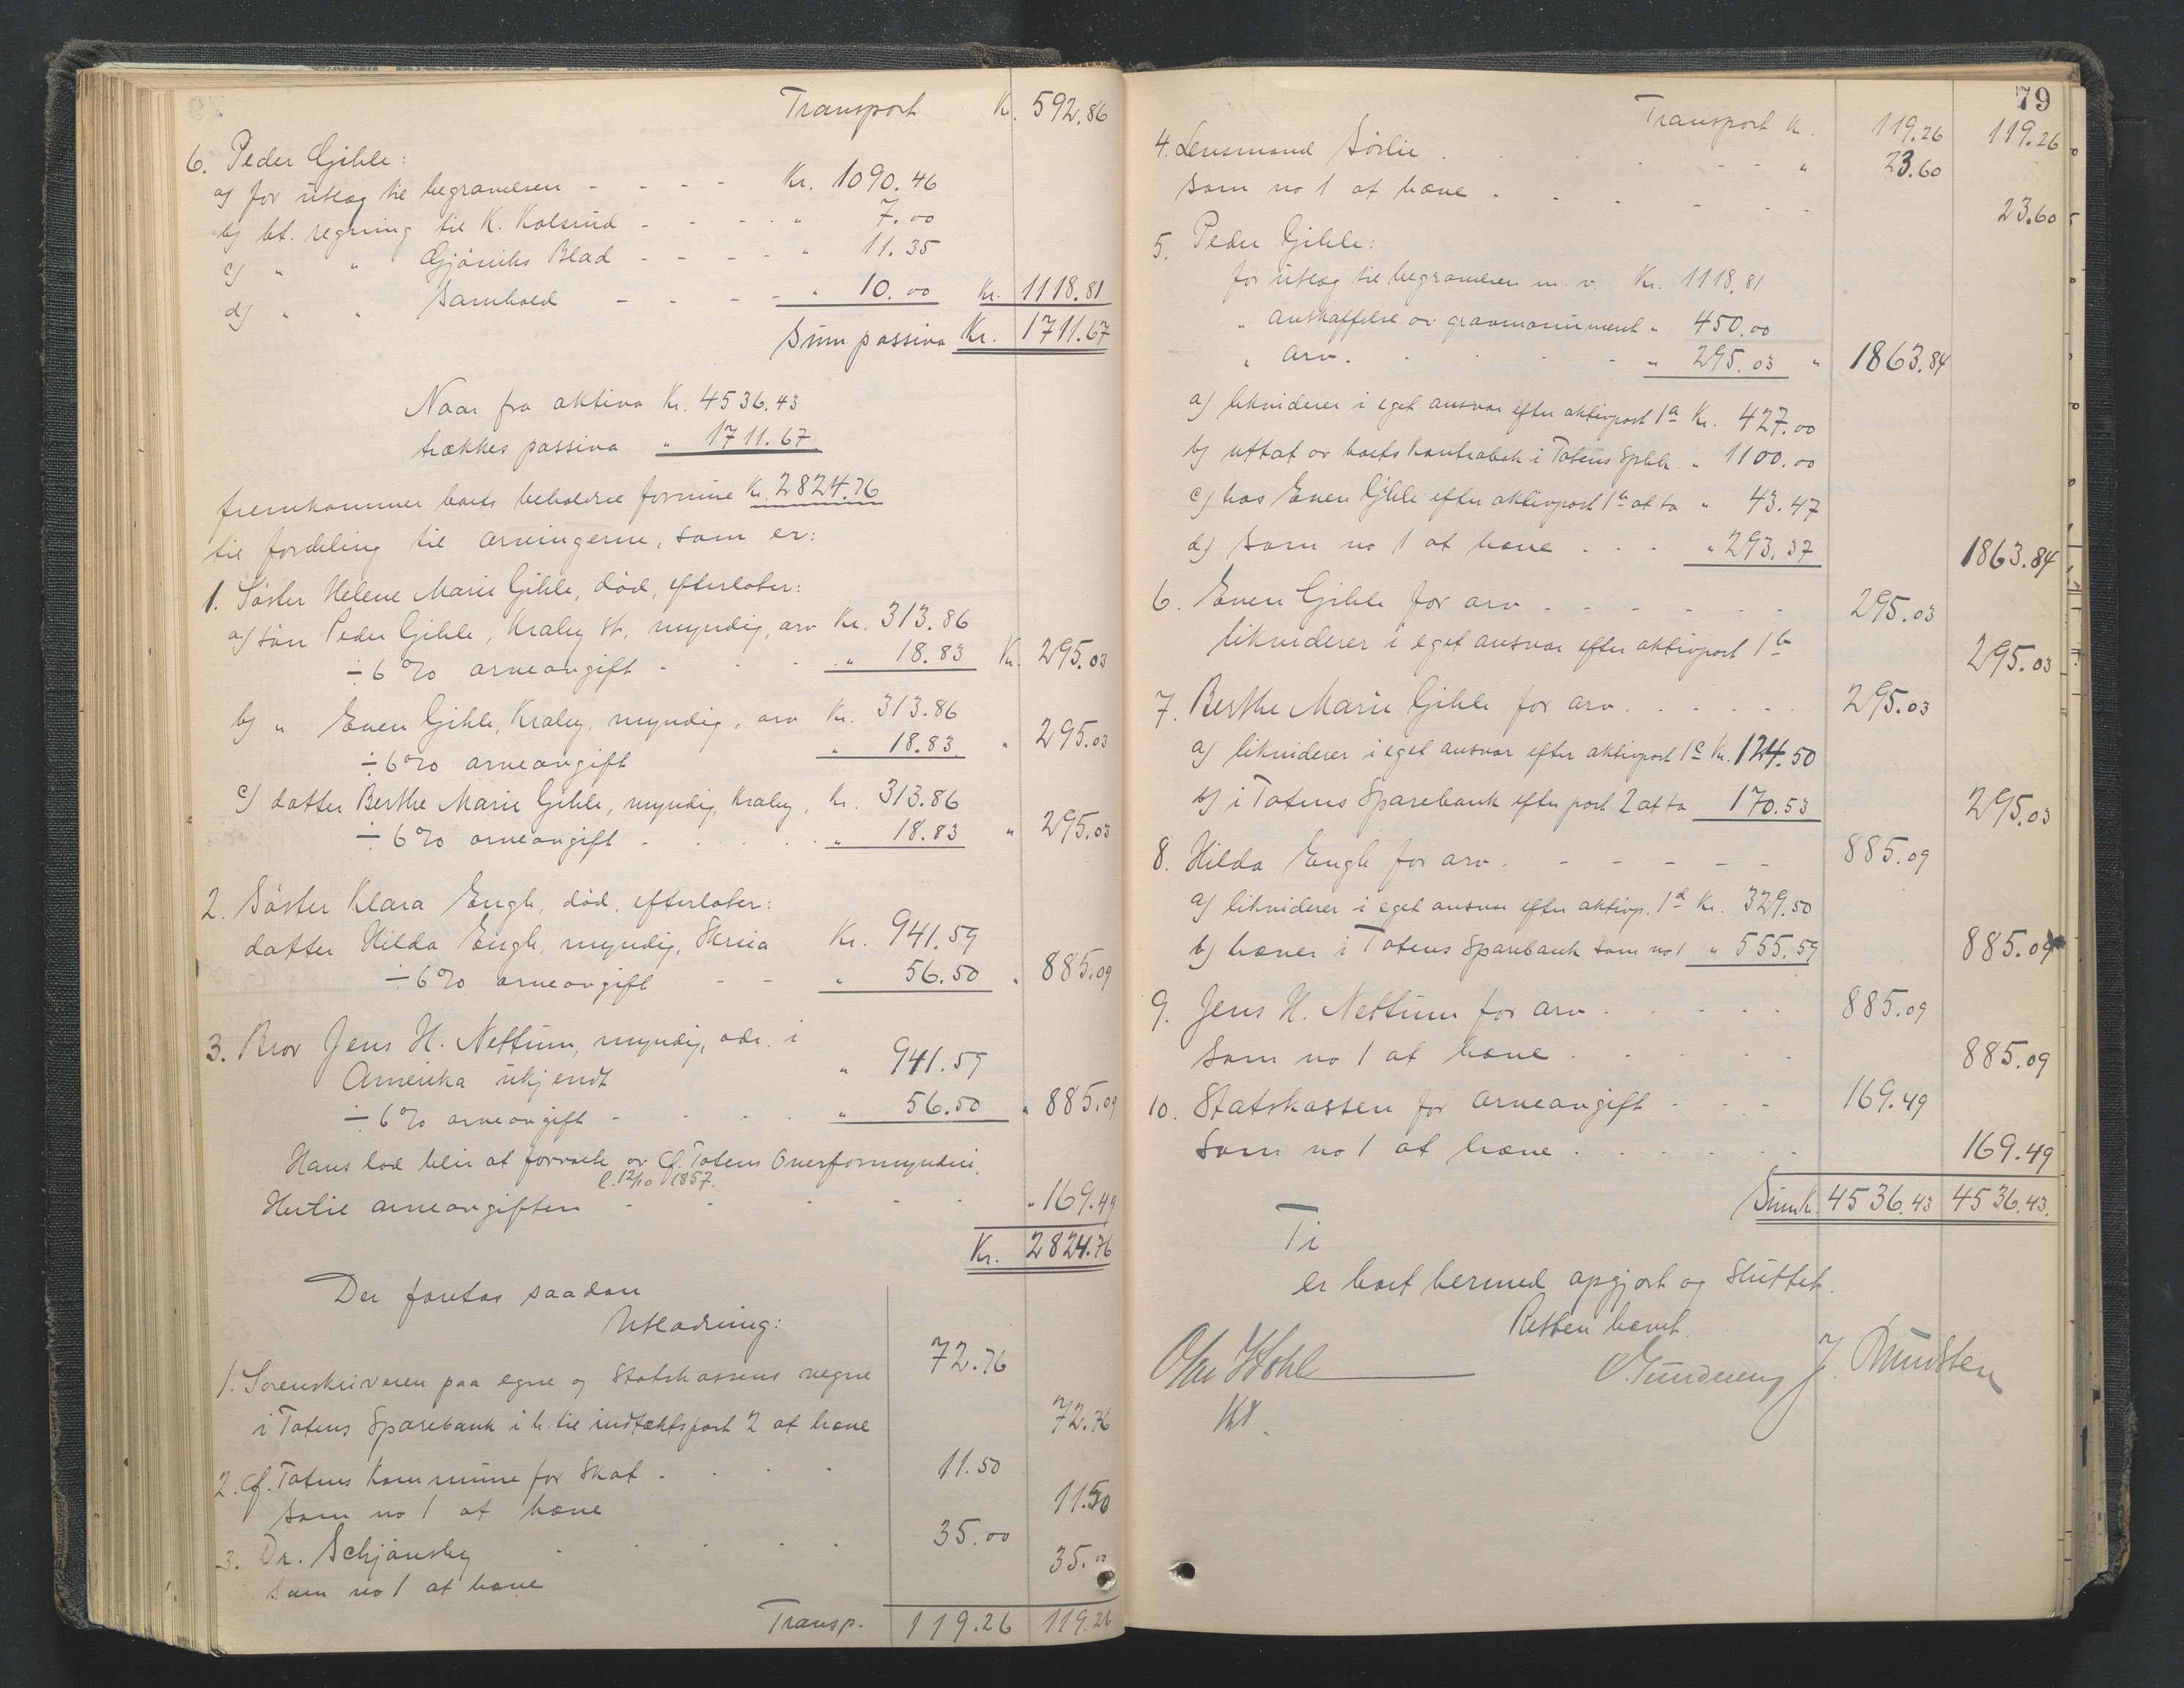 Transport Kr. 592.86
6. Peder Gihle:
a) for utlæg til begravelsen - - - - Kr. 1090.46
b) bt. regning til K. Kolsrud - - - - " 7.00
c) " " Gjøviks Blad - - - - " 11.35
d) " " Samhold - - - - " 10.00 Kr. 1118.81
Sum passiva Kr. 1711.67
Naar fra aktiva Kr. 4536.43
trækkes passiva " 1711.67
fremkommer boets beholdne formue Kr. 2824.76
til fordeling til arvingerne, som er:
1. Søster Helene Marie Gihle, død, efterlater:
a) søn Peder Gihle, Kraby st., myndig, arv Kr. 313.86
÷ 6% arveavgift - . . " 18.83 Kr. 295.03
b) " Even Gihle, Kraby, myndig, arv Kr. 313.86
÷ 6% arveavgift " 18.83 " 295.03
c) datter Berthe Marie Gihle, myndig, Kraby, Kr. 313.86
÷ 6% arveavgift . . . . . " 18.83 " 295.03
2. Søster Klara Engh, død, efterlater:
datter Hilda Engh, myndig, Skreia Kr. 941.59
÷ 6% arveavgift - - " 56.50 " 885.09
3. Bror Jens H. Nettum, myndig, adr. i
Amerika ukjendt " 941.59
÷ 6% arveavgift - . . . " 56.50 " 885.09
Hans lod blir at forvalte av Ø. Totens Overformynderi,
l. 12/10 1857.
Hertil arveavgiften - - - - - " 169.49
Kr. 2824.76
Der foretas saadan
Utlodning:
1. Sorenskriveren paa egne og Statskassens vegne 72.76
i Totens Sparebank i h. til indtægtspost 2 at hæve 72.76
2. Ø. Totens Kommune for skat . . . . 11.50
som no 1 at hæve 11.50
3. Dr. Schjønsby . . . . . 35.00
som no 1 at hæve 35.00
Transp. 119.26 119.26
79
Transport Kr. 119.26 119.26
4. Lensmand Sørlie . . . . - - - " 23.60
som no 1 at hæve . . . - - . 23.60
5. Peder Gihle:
for utlæg til begravelsen m. v. Kr. 1118.81
" anskaffelse av gravmonument " 450.00
" arv . . . . . " 295.03 " 1863.84
a) likviderer i eget ansvar efter aktivpost 1a Kr. 427.00
b) uttat av boets kontrabok i Totens Spbk. " 1100.00
c) hos Even Gihle efter aktivpost 1b at ta " 43.47
d) som no 1 at hæve . . . " 293.37 1863.84
6. Even Gihle for arv - - - - - - 295.03
likviderer i eget ansvar efter aktivpost 1b 295.03
7. Berthe Marie Gihle for arv . . . . . . 295.03
a) likviderer i eget ansvar efter aktivpost 1c Kr. 124.50
b) i Totens Sparebank efter post 2 at ta 170.53 295.03
8. Hilda Engh for arv . - - - - - 885.09
a) likviderer i eget ansvar efter aktivp. 1d Kr. 329.50
b) hæver i Totens Sparebank som no 1 " 555.59 885.09
9. Jens H. Nettum for arv . . . . . 885.09
som no 1 at hæve . . . . . 885.09
10. Statskassen for arveavgift - - - 169.49
som no 1 at hæve . . . . . . 169.49
Sum kr. 4536.43 4536.43.
Ti
er boet hermed opgjort og sluttet.
Retten hævet.